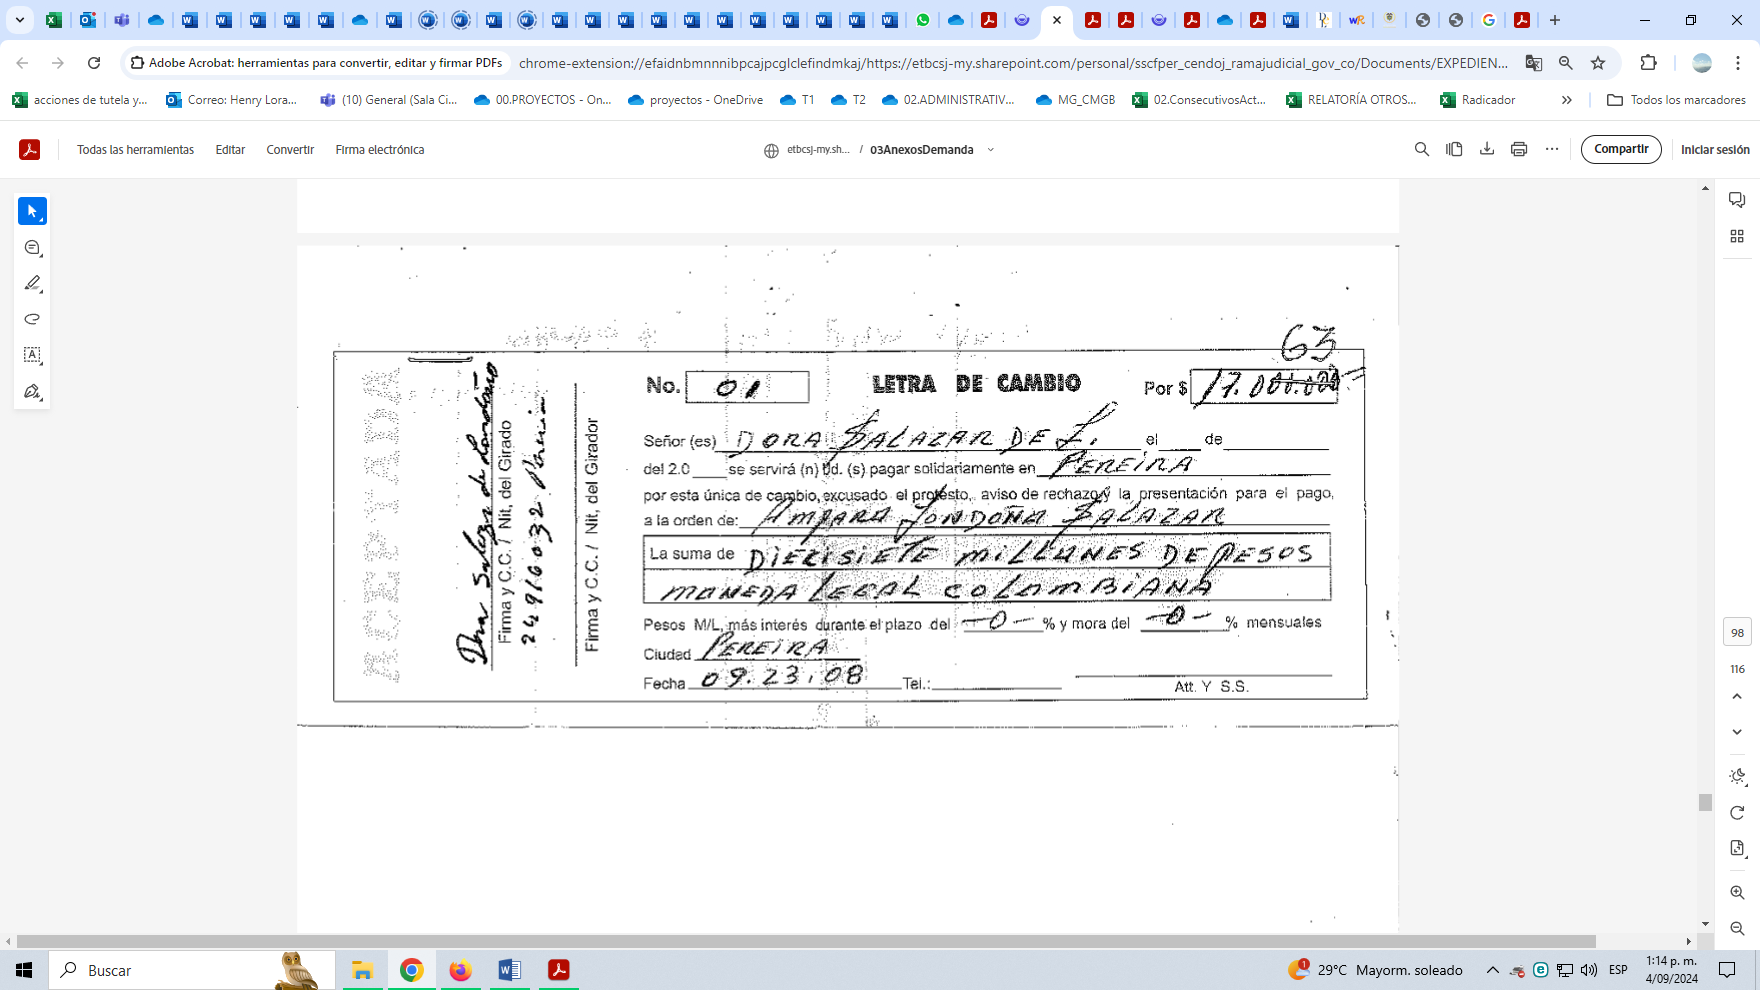 Adobe Acrobat: herramientas para convertir, editar y firmar PDFs
chrome-extension://efaidnbmnnnibpcajpcglclefindmkaj/https://etbcsj-my.sharepoint.com/personal/sscfper_cendoj_ramajudicial_gov_co/Documents/EXPEDIEN...
acciones de tutela y...
Correo: Henry Lora...
(10) General (Sala Ci...
00.PROYECTOS - On...
proyectos - OneDrive
T1
T2
02.ADMINISTRATIV...
MG_CMGB
02.ConsecutivosAct...
RELATORÍA OTROS...
Radicador
Todos los marcadores
Todas las herramientas
Editar
Convertir
Firma electrónica
etbcsj-my.sh... / 03AnexosDemanda
Compartir
Iniciar sesión
63
ACEPTADA
Dora Salazar de Londoño
Firma y C.C. / Nit, del Girado
24916032 Pereira
Firma y C.C. / Nit, del Girador
No. 01 LETRA DE CAMBIO Por $ 17.000.000
Señor (es) DORA SALAZAR DE L. , el de
del 2.0 se servirá (n) Ud. (s) pagar solidariamente en PEREIRA
por esta única de cambio, excusado el protesto, aviso de rechazo y la presentación para el pago,
a la orden de: AMPARO LONDOÑO SALAZAR
La suma de DIECISIETE MILLONES DE PESOS
MONEDA LEGAL COLOMBIANA
Pesos M/L, más interés durante el plazo del —0— % y mora del —0— % mensuales
Ciudad PEREIRA
Fecha 09.23.08 Tel.:
Att. Y S.S.
98
116
Buscar
29°C Mayorm. soleado
ESP
1:14 p. m.
4/09/2024